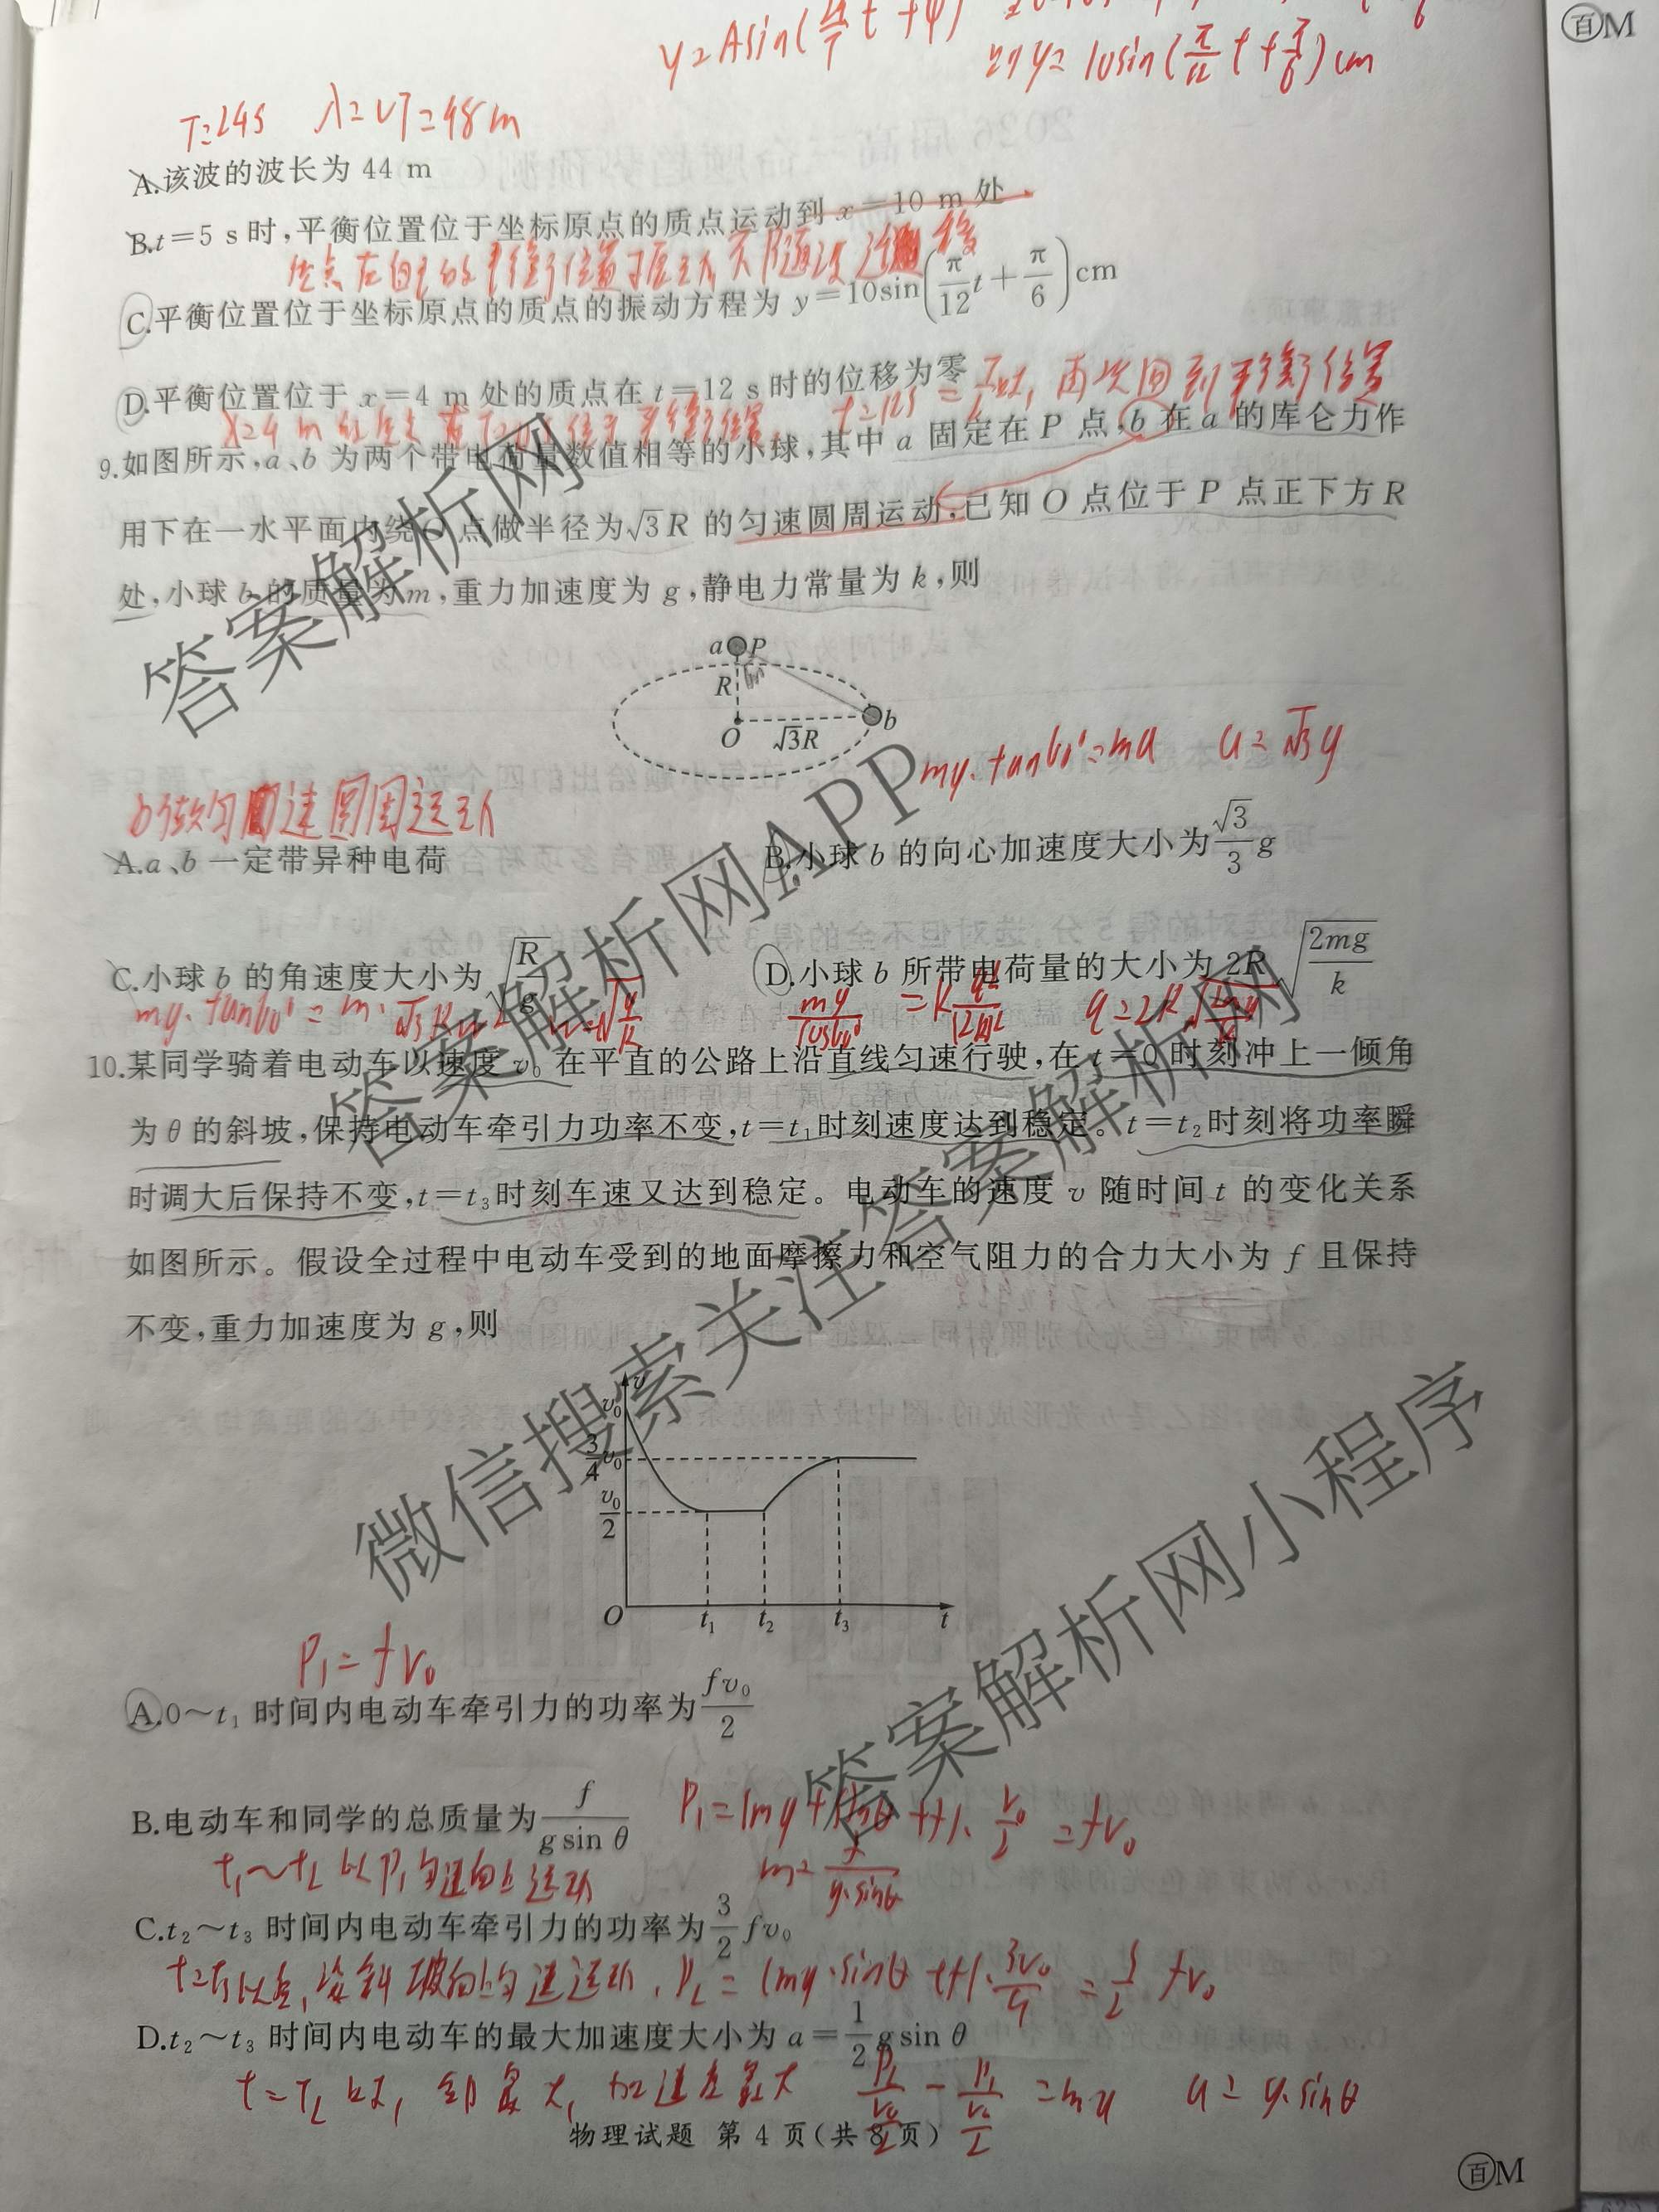 百M
y=Asin(
t+φ)
y=10sin(π/12 t+π/6)cm
T=24s λ=vT=48m
A.该波的波长为 44 m
B.t=5 s时,平衡位置位于坐标原点的质点运动到 x=10 m 处
质点在自己的平衡位置附近振动不随波迁移
C.平衡位置位于坐标原点的质点的振动方程为 y=10sin(π/12 t+π/6)cm
D.平衡位置位于 x=4 m 处的质点在 t=12 s时的位移为零
再次回到平衡位置
9.如图所示,a、b 为两个带电荷量数值相等的小球,其中 a 固定在 P 点,b 在 a 的库仑力作
用下在一水平面内绕O点做半径为√3R 的匀速圆周运动,已知 O 点位于 P 点正下方 R
处,小球 b 的质量为m,重力加速度为 g,静电力常量为 k,则
a P
R
O √3R b
mg·tan60°=ma a=√3g
b做匀速圆周运动
A.a、b 一定带异种电荷 B.小球 b 的向心加速度大小为√3/3 g
C.小球 b 的角速度大小为√(R/g) D.小球 b 所带电荷量的大小为 2R√(2mg/k)
mg·tan60°=m·√3Rω² ω=√(g/R) mg/cos60°=k q²/(2R)² q=2R√(2mg/k)
10.某同学骑着电动车以速度 v₀ 在平直的公路上沿直线匀速行驶,在 t=0 时刻冲上一倾角
为 θ 的斜坡,保持电动车牵引力功率不变,t=t₁时刻速度达到稳定。t=t₂时刻将功率瞬
时调大后保持不变,t=t₃时刻车速又达到稳定。电动车的速度 v 随时间 t 的变化关系
如图所示。假设全过程中电动车受到的地面摩擦力和空气阻力的合力大小为 f 且保持
不变,重力加速度为 g,则
v
v₀
3/4 v₀
v₀/2
O t₁ t₂ t₃ t
P₁=fv₀
A.0～t₁ 时间内电动车牵引力的功率为fv₀/2
B.电动车和同学的总质量为f/(g sin θ)
P₁=(mg·sinθ+f)·v₀/2=fv₀
t₁～t₂以P₁匀速向上运动 m=f/(g·sinθ)
C.t₂～t₃ 时间内电动车牵引力的功率为3/2 fv₀
t=t₃以后,沿斜坡向上匀速运动,P₂=(mg·sinθ+f)·3v₀/4=3/2 fv₀
D.t₂～t₃ 时间内电动车的最大加速度大小为 a=1/2 g sin θ
t=t₂时,牵引力最大,加速度最大 P₂/(v₀/2)-P₁/(v₀/2)=ma a=g·sinθ
物理试题 第 4 页(共 8 页)
百M
答案解析网
答案解析网APP
答案解析网
微信搜索关注答案解析网
答案解析网小程序